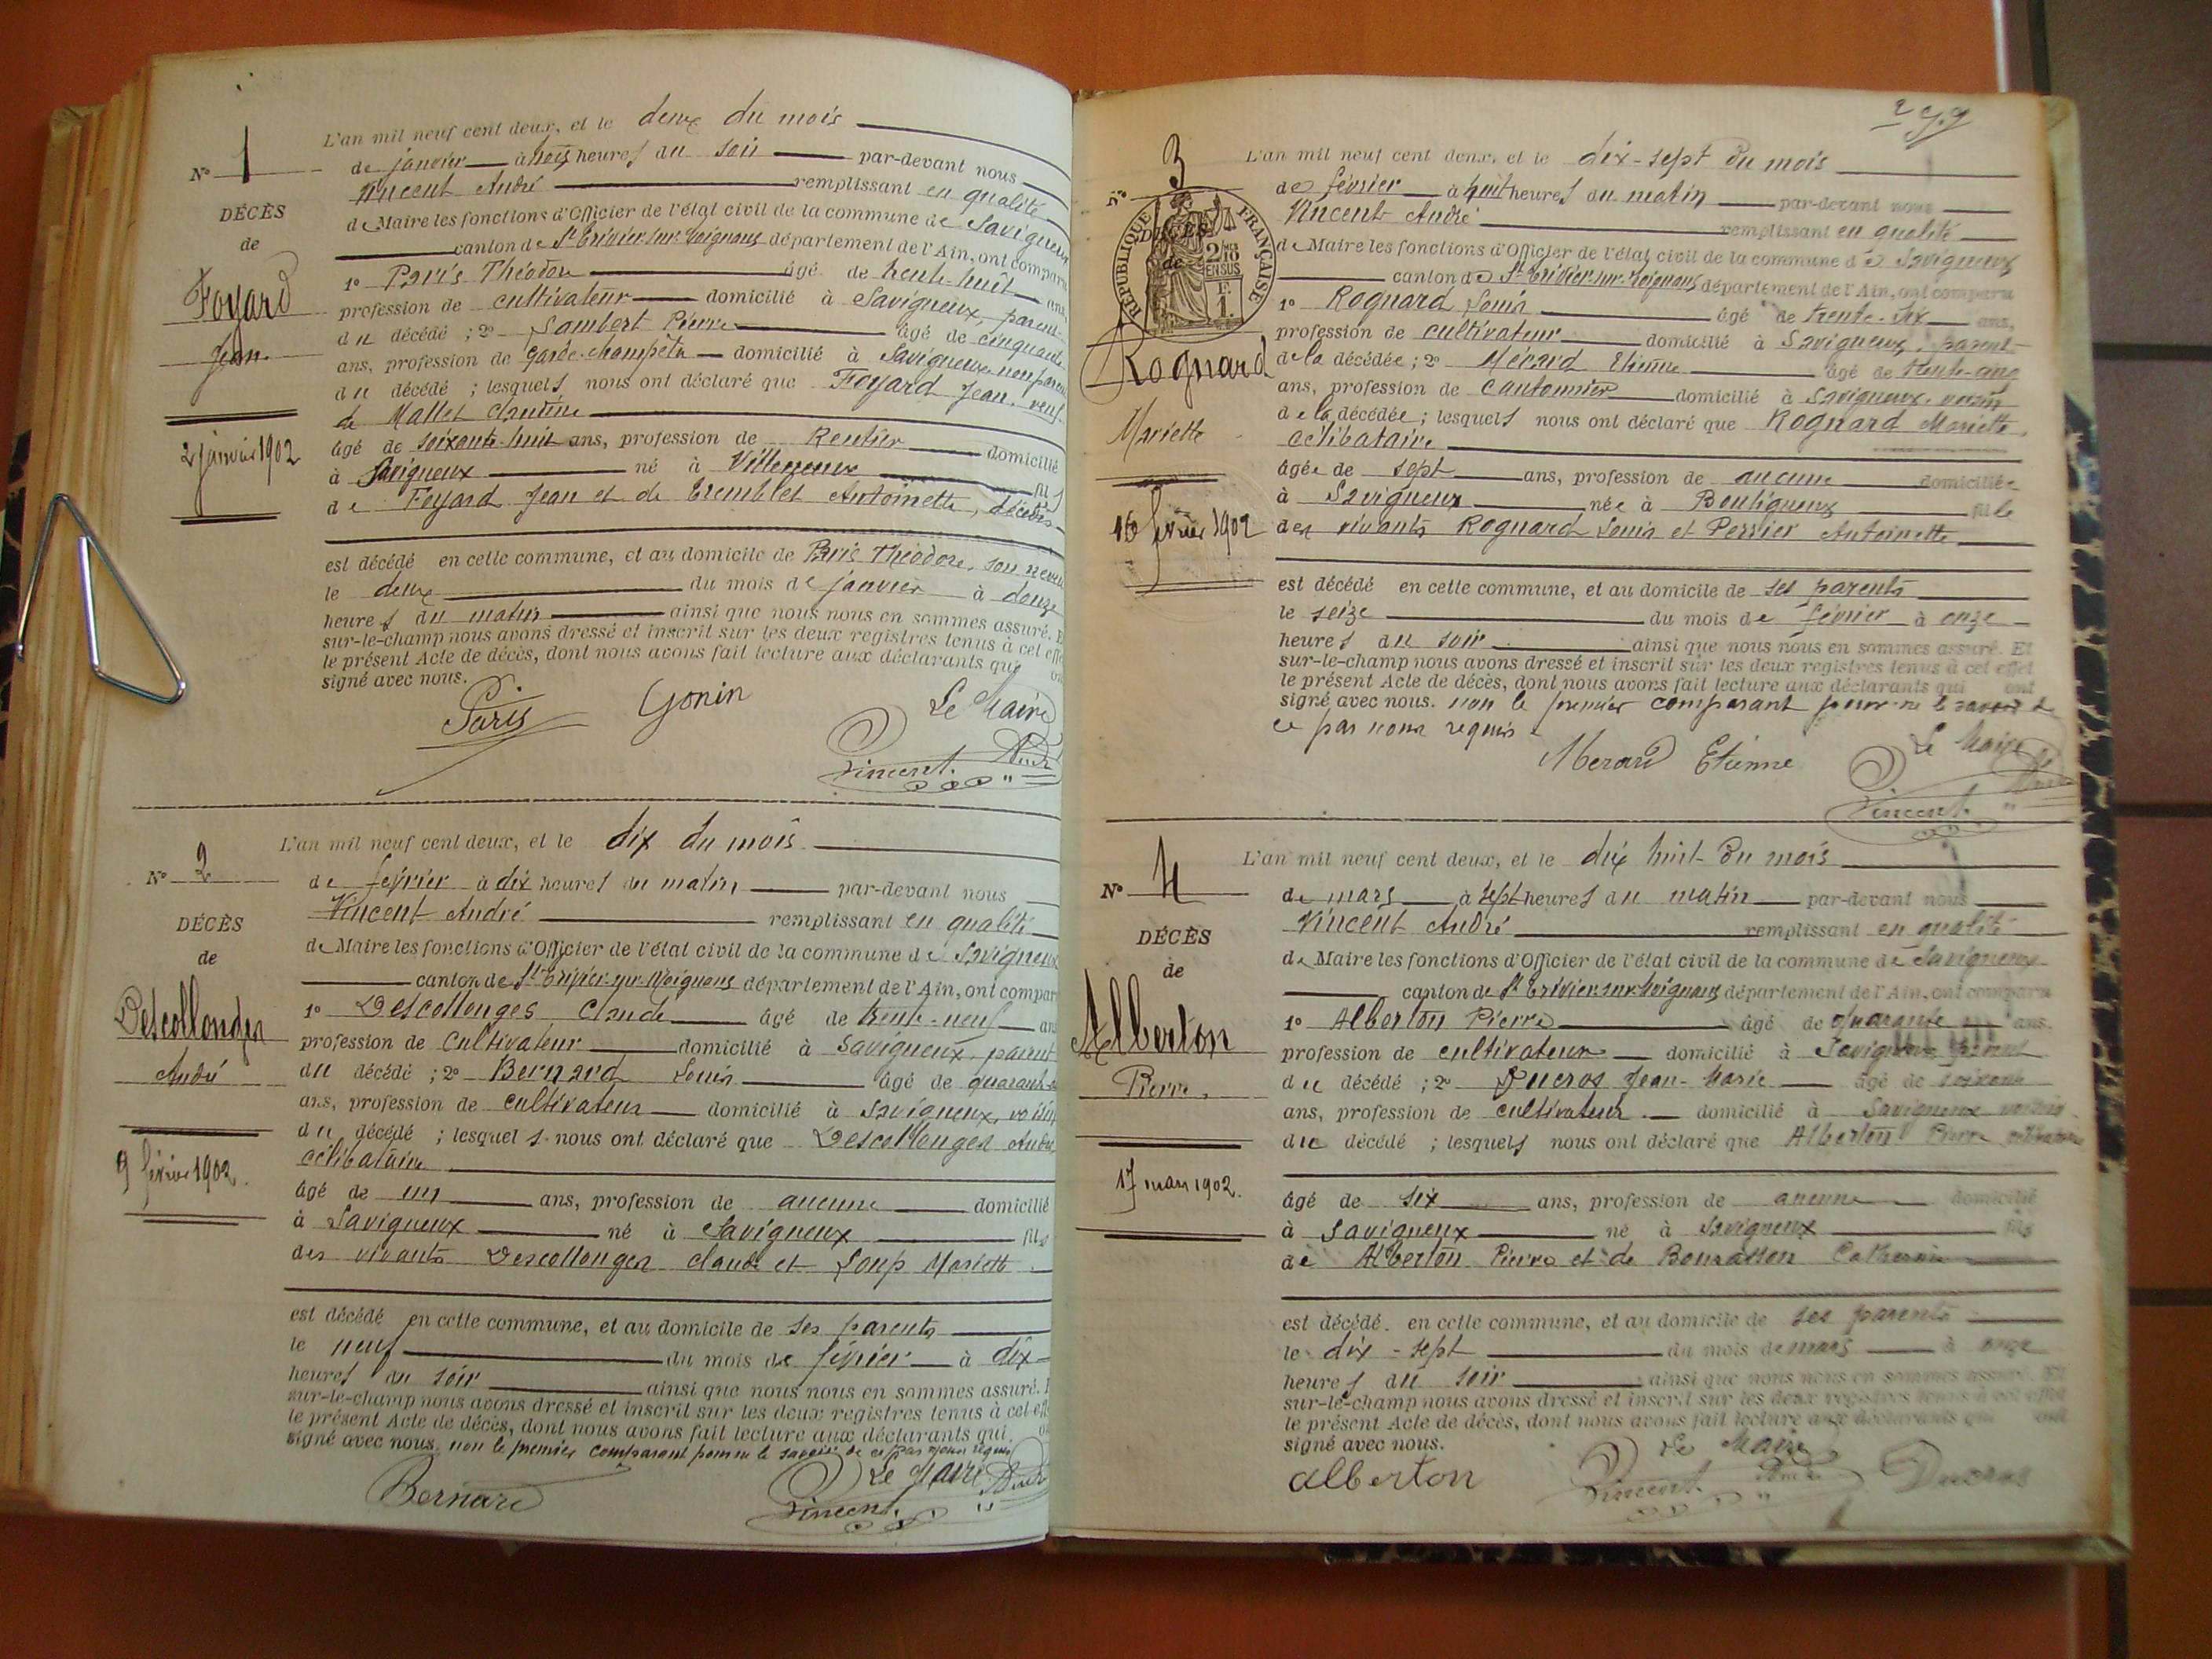 N° 1
DÉCÈS
de
Foyard
Jean
2 janvier 1902
L'an mil neuf cent deux, et le deux du mois
de janvier à trois heures du soir par-devant nous
Vincent André remplissant en qualité
de Maire les fonctions d'Officier de l'état civil de la commune de Savigneux
canton de St Trivier-sur-Moignans département de l'Ain, ont comparu
1° Paris Théodore âgé de trente-huit ans,
profession de cultivateur domicilié à Savigneux, parent
du décédé ; 2° Lambert Pierre âgé de cinquante
ans, profession de garde-champêtre domicilié à Savigneux non parent
du décédé ; lesquels nous ont déclaré que Foyard Jean, veuf
de Mallet Claudine
âgé de soixante-huit ans, profession de Rentier domicilié
à Savigneux né à Villeneuve fils
de Foyard Jean et de Tremblet Antoinette, décédés
est décédé en cette commune, et au domicile de Paris Théodore, son neveu
le deux du mois de janvier à douze
heures du matin ainsi que nous nous en sommes assuré. E
sur-le-champ nous avons dressé et inscrit sur les deux registres tenus à cet effe
le présent Acte de décès, dont nous avons fait lecture aux déclarants qui
signé avec nous.
Paris Gonin Le Maire
Vincent André
N° 2
DÉCÈS
de
Descollonges
André
9 février 1902.
L'an mil neuf cent deux, et le dix du mois
de février à dix heures du matin par-devant nous
Vincent André remplissant en qualité
de Maire les fonctions d'Officier de l'état civil de la commune de Savigneux
canton de St Trivier-sur-Moignans département de l'Ain, ont compar
1° Descollonges Claude âgé de trente-neuf an
profession de cultivateur domicilié à Savigneux, parent
du décédé ; 2° Bernard Louis âgé de quarante
ans, profession de cultivateur domicilié à Savigneux, voisin
du décédé ; lesquels nous ont déclaré que Descollonges André,
célibataire
âgé de un ans, profession de aucune domicilié
à Savigneux né à Savigneux fils
des vivants Descollonges Claude et Loup Mariette
est décédé en cette commune, et au domicile de ses parents
le neuf du mois de février à dix
heures du soir ainsi que nous nous en sommes assuré. E
sur-le-champ nous avons dressé et inscrit sur les deux registres tenus à cet effe
le présent Acte de décès, dont nous avons fait lecture aux déclarants qui
signé avec nous, non le premier comparant pour ne le savoir de ce par nous requis
Bernard Le Maire
Vincent André
N° 3
RÉPUBLIQUE FRANÇAISE
2/10 EN SUS
F. 1.
DÉCÈS
de
Rognard
Mariette
16 février 1902
L'an mil neuf cent deux, et le dix-sept du mois
de février à huit heures du matin par-devant nous
Vincent André remplissant en qualité
de Maire les fonctions d'Officier de l'état civil de la commune de Savigneux
canton de St Trivier-sur-Moignans département de l'Ain, ont comparu
1° Rognard Louis âgé de trente-six ans,
profession de cultivateur domicilié à Savigneux, parent
de la décédée ; 2° Mérard Etienne âgé de trente-cinq
ans, profession de cantonnier domicilié à Savigneux, voisin
de la décédée ; lesquels nous ont déclaré que Rognard Mariette,
célibataire
âgée de sept ans, profession de aucune domiciliée
à Savigneux née à Bouligneux fille
des vivants Rognard Louis et Perrier Antoinette
est décédé en cette commune, et au domicile de ses parents
le seize du mois de février à onze
heures du soir ainsi que nous nous en sommes assuré. Et
sur-le-champ nous avons dressé et inscrit sur les deux registres tenus à cet effet
le présent Acte de décès, dont nous avons fait lecture aux déclarants qui ont
signé avec nous. non le premier comparant pour ne le savoir de
ce par nous requis
Merard Etienne Le Maire
Vincent André
N° 4
DÉCÈS
de
Alberton
Pierre,
17 mars 1902.
L'an mil neuf cent deux, et le dix huit du mois
de mars à sept heures du matin par-devant nous
Vincent André remplissant en qualité
de Maire les fonctions d'Officier de l'état civil de la commune de Savigneux
canton de St Trivier-sur-Moignans département de l'Ain, ont comparu
1° Alberton Pierre âgé de quarante ans.
profession de cultivateur domicilié à Savigneux parent
du décédé ; 2° Ducros Jean-Marie âgé de soixante
ans, profession de cultivateur domicilié à Savigneux voisin
du décédé ; lesquels nous ont déclaré que Alberton Pierre célibataire
âgé de six ans, profession de aucune domicilié
à Savigneux né à Savigneux fils
de Alberton Pierre et de Catherine
est décédé. en cette commune, et au domicile de ses parents
le dix-sept du mois de mars à onze
heures du soir ainsi que nous nous en sommes assuré. Et
sur-le-champ nous avons dressé et inscrit sur les deux registres tenus à cet effet
le présent Acte de décès, dont nous avons fait lecture aux déclarants qui ont
signé avec nous.
Le Maire
alberton Vincent André Ducros